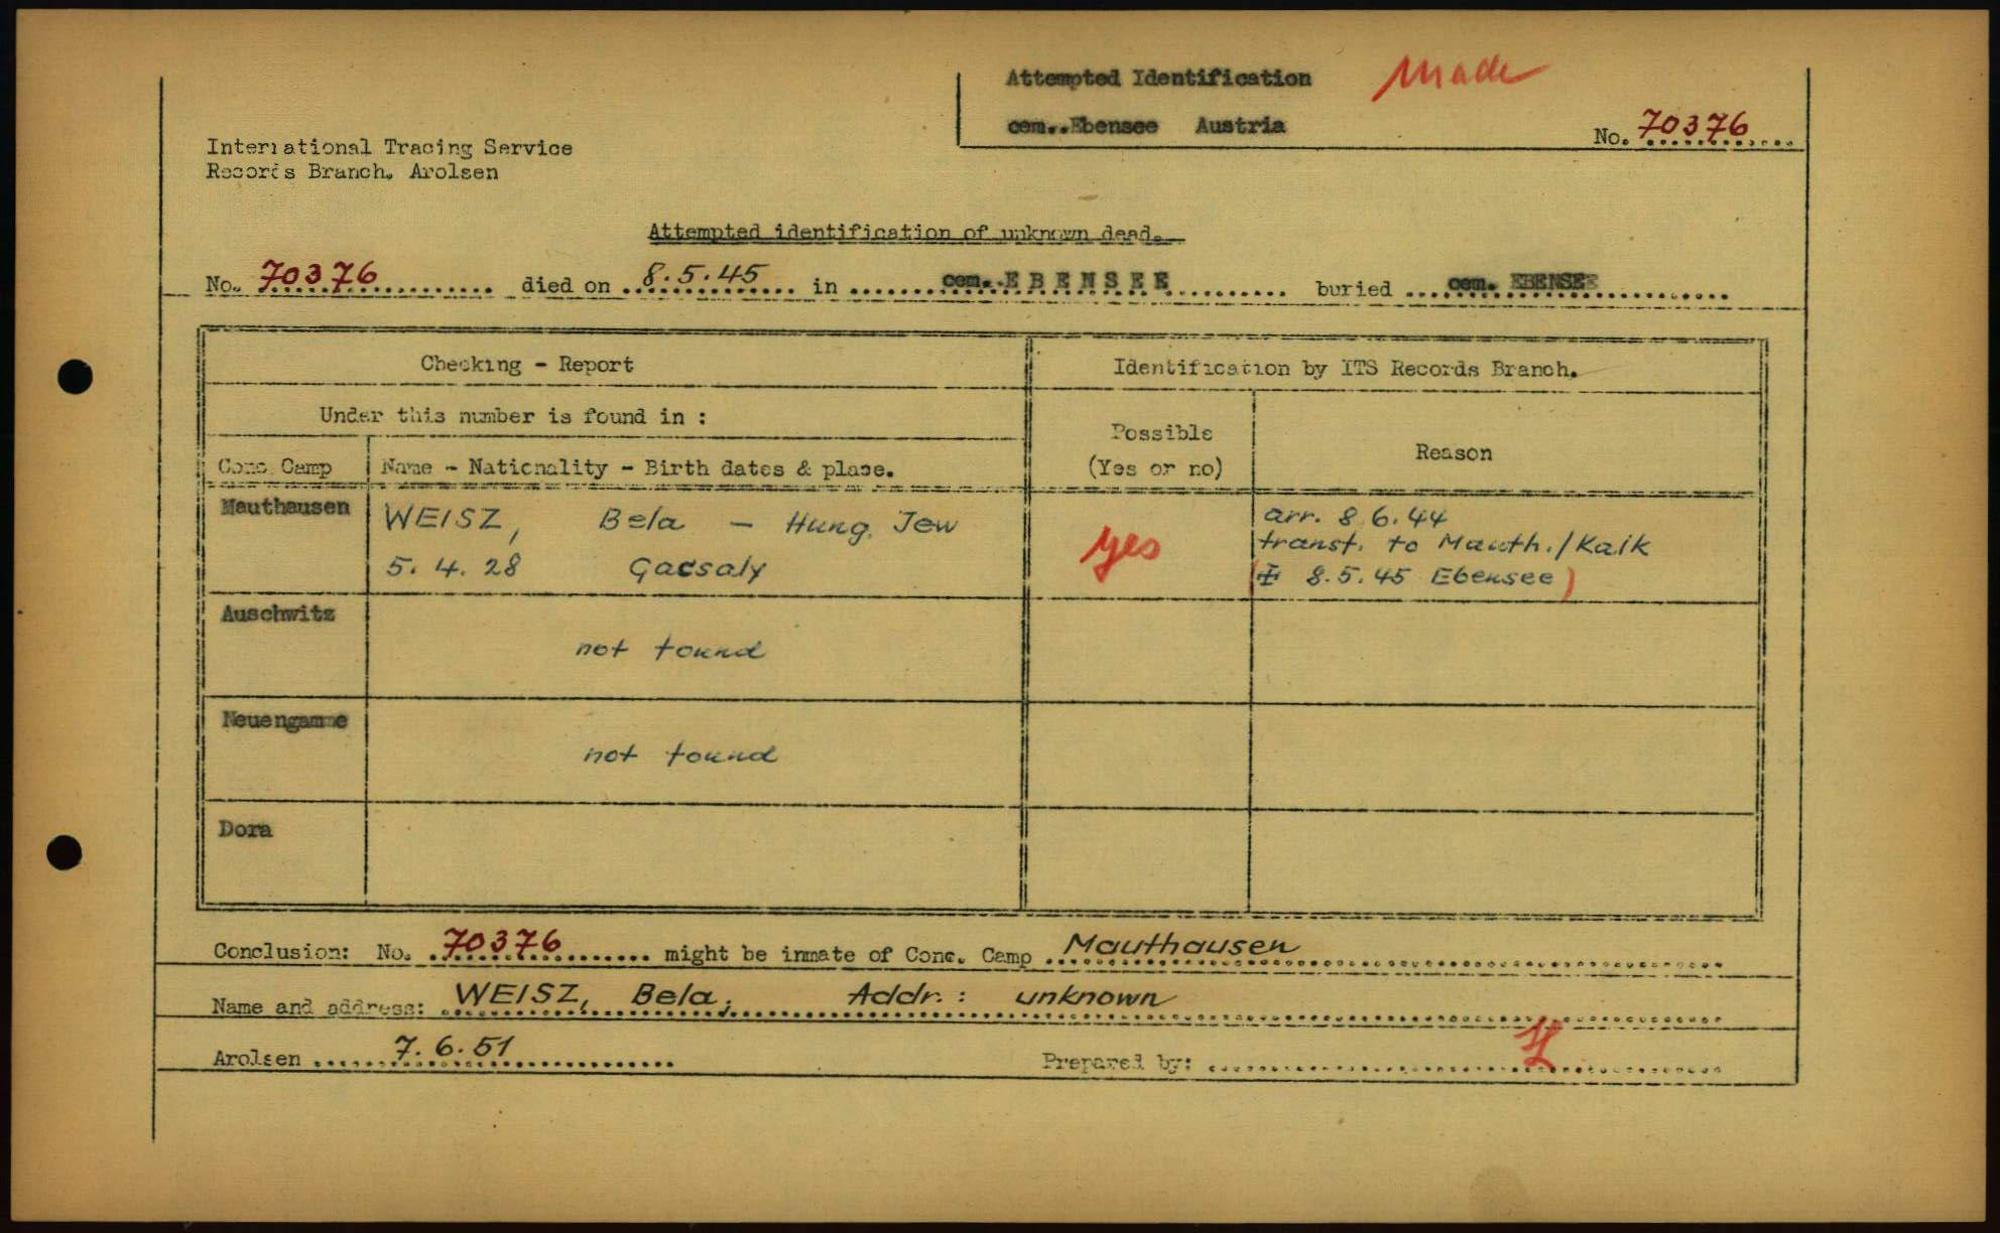 Attempted Identification made
cem..Ebensee Austria No. 70376
International Tracing Service
Records Branch, Arolsen
Attempted identification of unknown dead.
No. 70376 died on 8.5.45 in cem. EBENSEE buried cem. EBENSEE
Checking - Report
Identification by ITS Records Branch.
Under this number is found in :
Conc Camp
Name - Nationality - Birth dates & place.
Possible
(Yes or no)
Reason
Mauthausen
WEISZ, Bela - Hung. Jew
5. 4. 28 Gacsaly
yes
arr. 8 6.44
transf. to Mauth./Kalk
(‡ 8.5.45 Ebensee)
Auschwitz
not found
Neuengamme
not found
Dora
Conclusion: No. 70376 might be inmate of Conc. Camp Mauthausen
Name and address: WEISZ, Bela; Addr.: unknown
Arolsen 7.6.51 Prepared by: